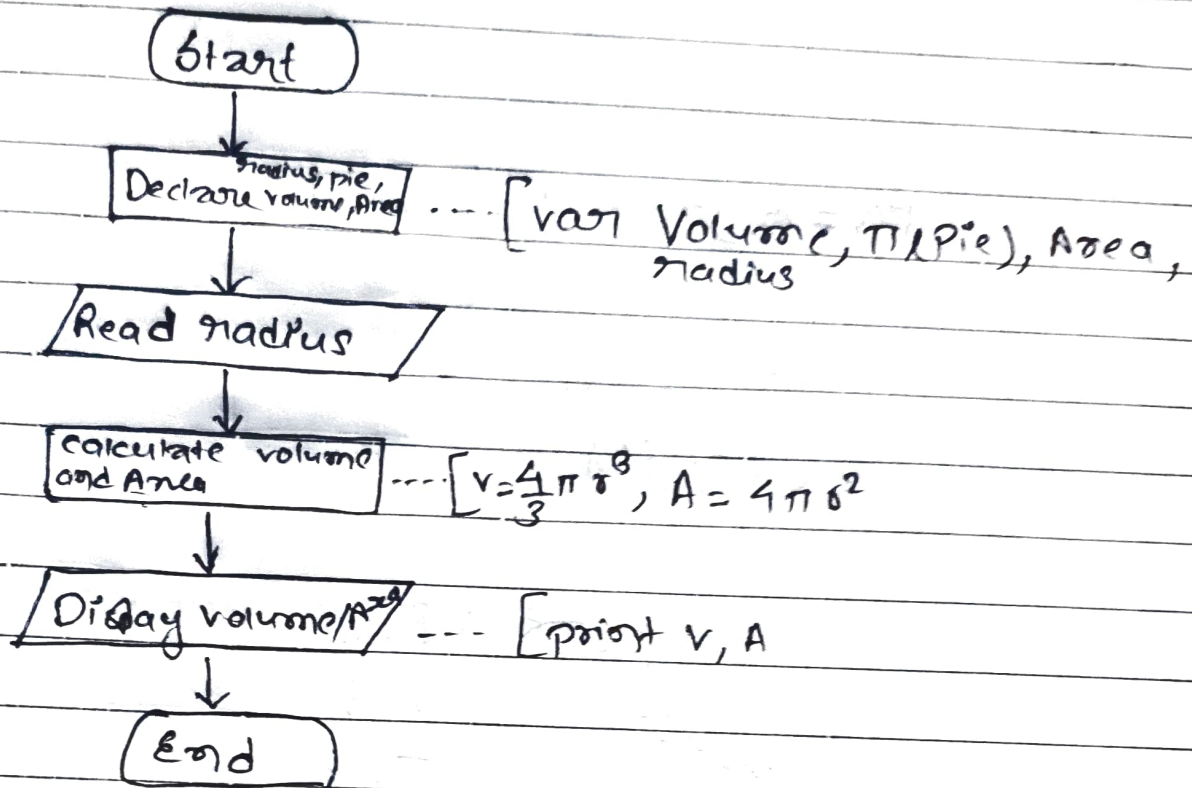 Start
radius, pie,
Declare volume, Area
[var Volume, π(Pie), Area,
radius
Read radius
calculate volume
and Area
[v = 4/3 π r³, A = 4 π r²
Display volume/Area
[print v, A
End